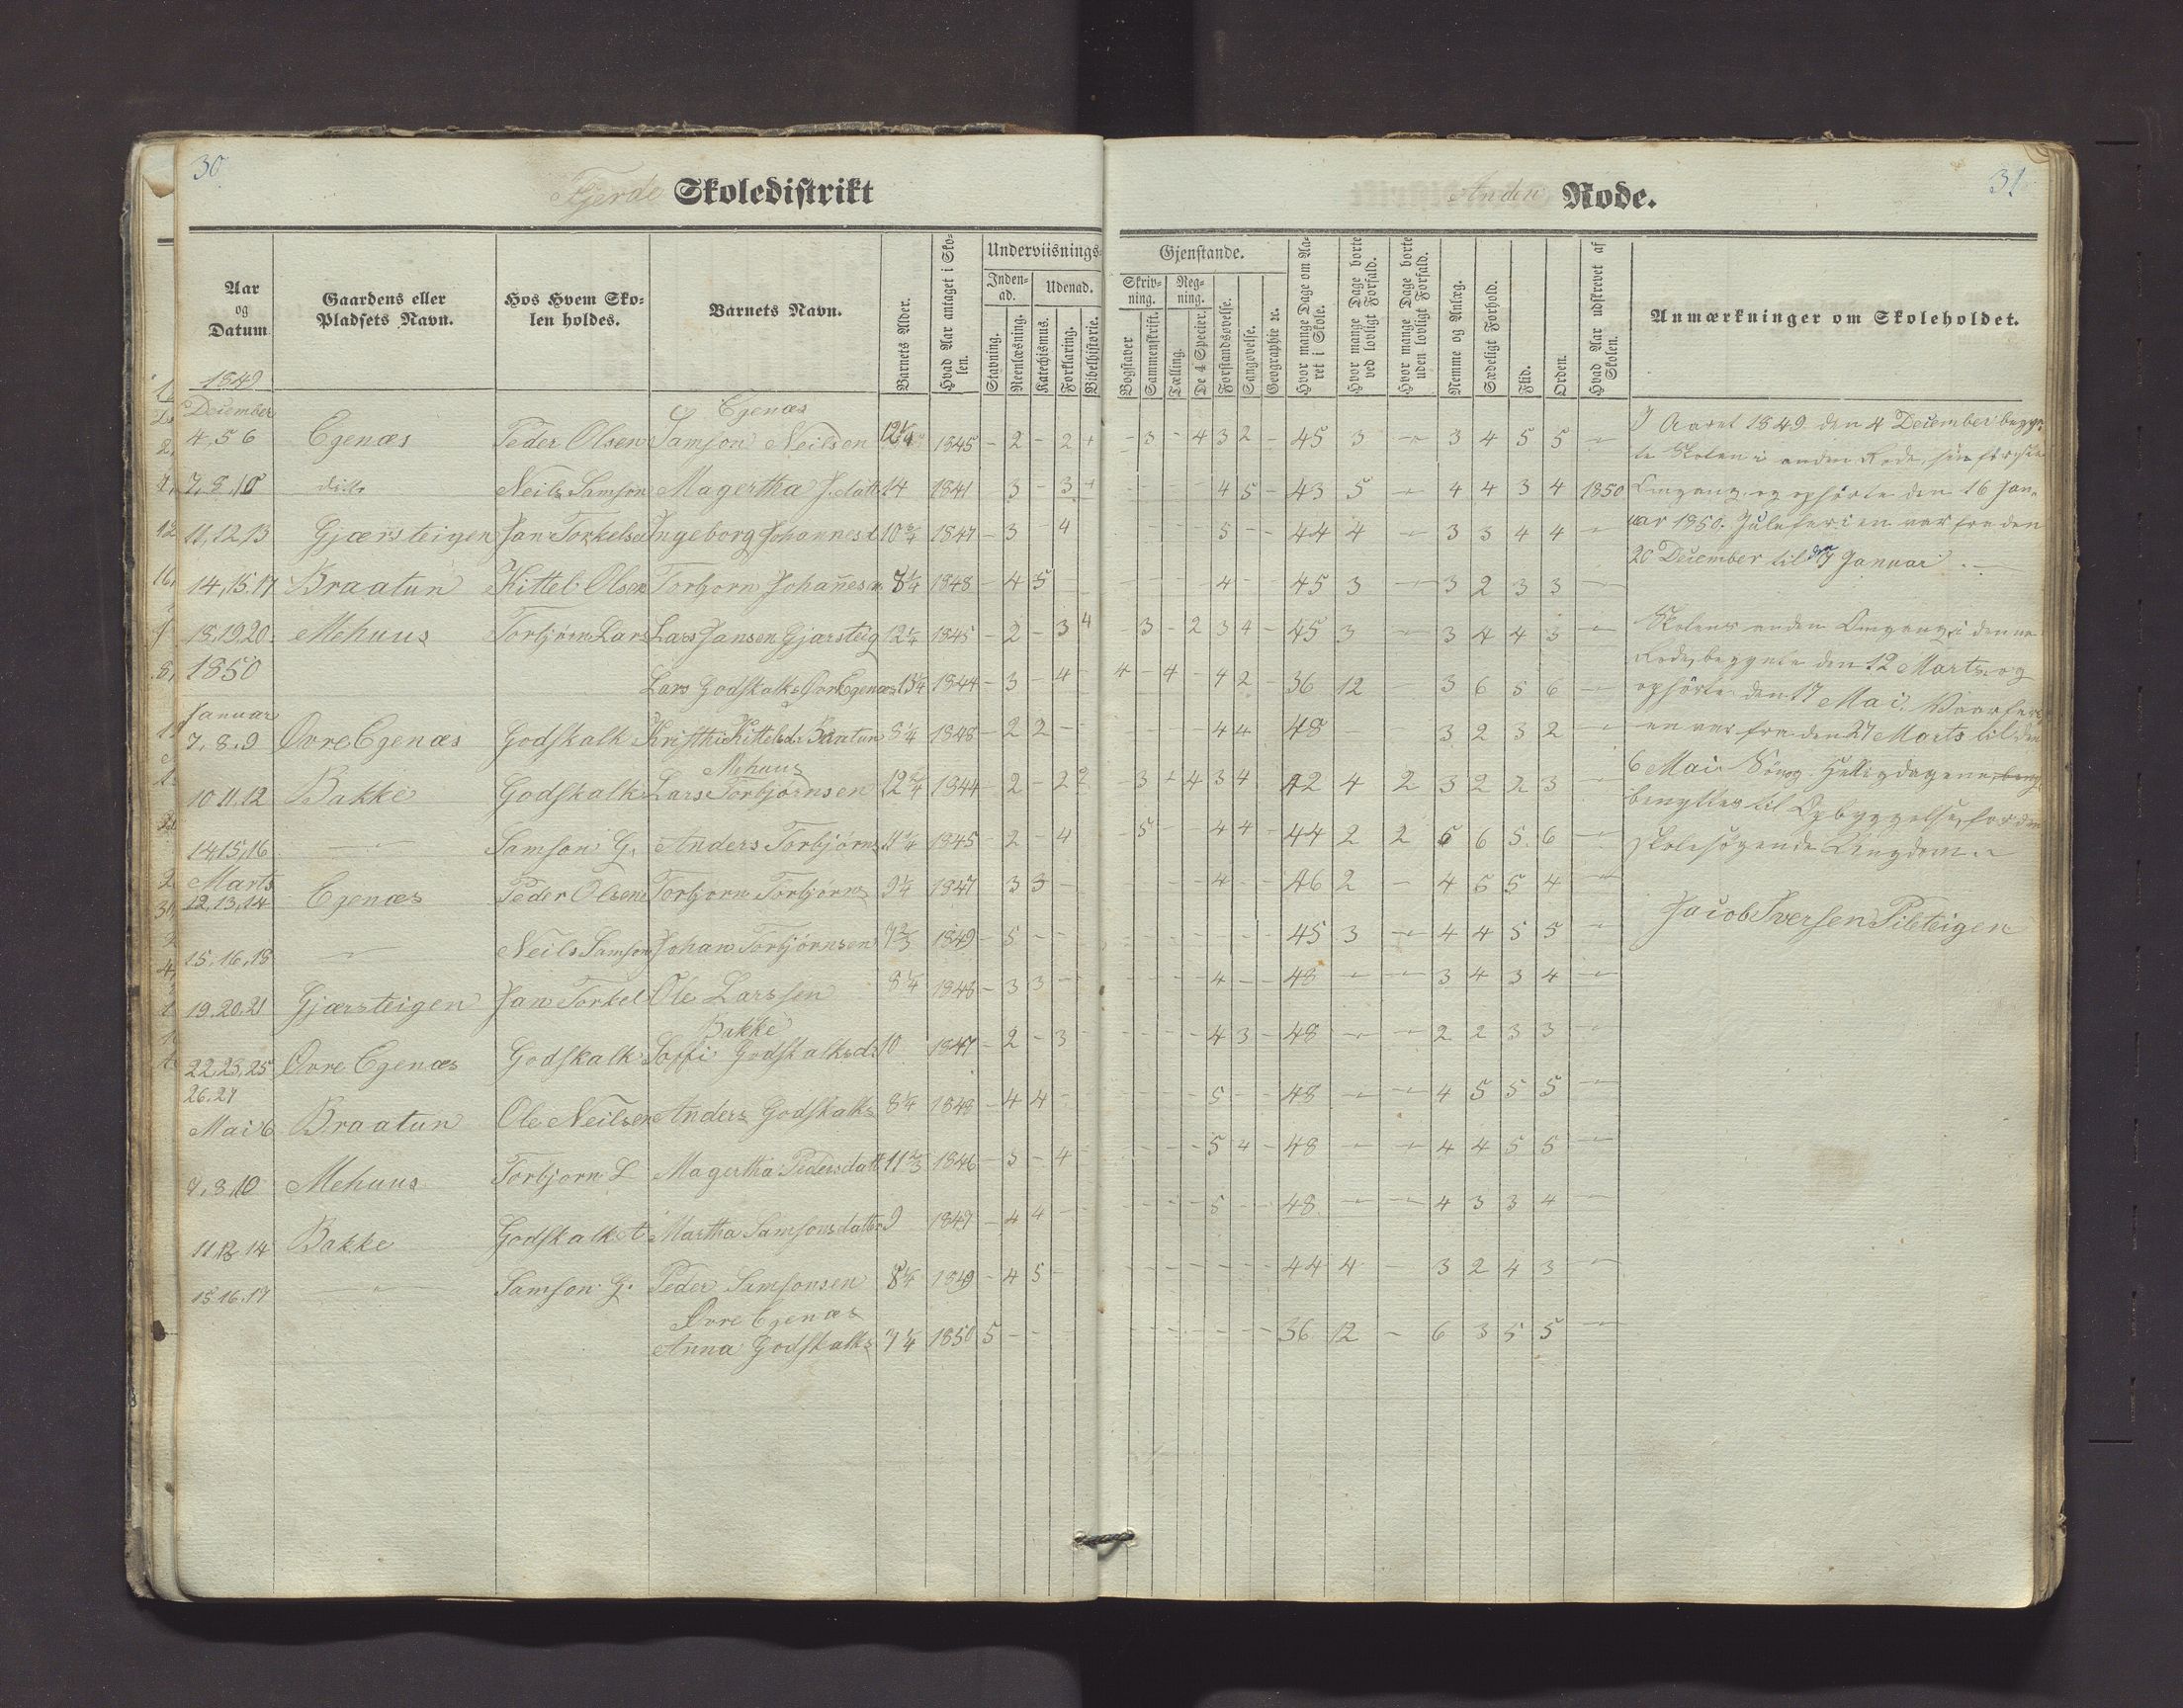 30
31
Fjerde Skoledistrikt
Anden Rode.
Aar og Datum
Gaardens eller Pladsets Navn.
Hos Hvem Skolen holdes.
Barnets Navn.
Barnets Alder.
Hvad Aar antaget i Skolen.
Underviisnings-
Inden-ad.
Udenad.
Stavning.
Reenlæsning.
Katechismus.
Forklaring.
Bibelhistorie.
Gjenstande.
Skriv-ning.
Reg-ning.
Bogstaver
Sammenskrift.
Tælling.
De 4 Specier.
Forstandsøvelse.
Sangøvelse.
Geographie &c.
Hvor mange Dage om Aaret i Skole.
Hvor mange Dage borte ved lovligt Forfald.
Hvor mange Dage borte uden lovligt Forfald.
Nemme og Anlæg.
Sædeligt Forhold.
Flid.
Orden.
Hvad Aar udskrevet af Skolen.
Anmærkninger om Skoleholdet.
1849
December
Egenæs
4,5 6 Egenæs Peder Olsen Samson Neilsen 12 1/4 1845 - 2 - 2 - 3 - 4 3 2 - 45 3 - 3 4 5 5
7, 8, 10 ditto Neils Samson Magertha J.datt 14 1841 3 - 3 4 5 - 43 5 - 4 4 3 4 1850
11,12,13 Gjærsteigen Jan Torkelsen Ingeborg Johannesd 10 3/4 1847 - 3 - 4 5 - - 44 4 - 3 3 4 4
14,15.17 Braatun Kittel Olsen Torbjorn Johannesen 8 1/4 1848 - 4 5 4 - 45 3 - 3 2 3 3
18,19,20. Mehuus Torbjørn Lars Lars Jansen Gjærsteig 12 1/4 1845 - 2 - 3 4 - 3 - 2 3 4 - 45 3 - 3 4 4 5
1850
Lars Godskalks Øvre Egenæs 13 1/4 1844 - 3 - 4 - 4 - 4 - 4 2 - 36 12 - 3 6 5 6
Januar
7. 8. 9 Øvre Egenæs Godskalk Kristhi Kittelsd. Braatun 8 1/4 1848 - 2 2 - - 4 4 48 - 3 2 3 2
Mehuus
10 11. 12 Bakke Godskalk Lars Torbjørnsen 12 1844 - 2 - 2 2 - 3 4 3 4 42 4 2 3 2 2 3
14,15,16 Samson G. Anders Torbjørns 11 1/4 1845 - 2 - 4 - 5 - 4 4 - 44 2 2 5 6 5 6
Marts
12,13,14 Egenæs Peder Olsen Torbjorn Torbjørns 9 1/4 1847 3 3 - 4 - - 46 2 - 4 5 5 4
15. 16. 18 Neils Samson Johan Torbjørnsen 7 2/3 1849 - 5 - - 45 3 - 4 4 5 5
19. 20. 21 Gjærsteigen Jan Torkel Ole Larssen 8 1/4 1848 - 3 3 - 4 - - 48 - 3 4 3 4
Bakke
22,23,25 Øvre Egenæs Godskalk Soffi Godskalksd. 10 1847 - 2 - 3 4 3 - 48 - 2 2 3 3
26. 27
Mai 6 Braatun Ole Neilsen Anders Godskalks 8 1/4 1848 - 4 4 - 5 - - 48 - 4 5 5 5
7, 8, 10 Mehuus Torbjorn L Magertha Pedersdatt 11 2/3 1846 - 3 - 4 5 4 - 48 - 4 4 5 5
11 13 14 Bakke Godskalk A Martha Samsonsdatter 9 1847 - 4 4 - 5 - - 48 - 4 3 3 4
15 16. 17 Samson G. Peder Samsonsen 8 1/4 1849 - 4 5 - 44 4 - 3 2 4 3
Øvre Egenæs
Anna Godskalks 7 1/4 1850 5 - - 36 12 - 6 3 5 5
I Aaret 1849 den 4 December begyn-
te Skolen i anden Rode, sin første
Omgang og ophørte den 16 Jan-
uar 1850. Juleferien var fra den
20 December til den 7 Januar.
Skolens anden Omgang i denne
Rode, begynte den 12 Marts og
ophørte den 17 Mai. Vaarferi-
en var fra den 27 Marts til den
6 Mai. Søn og Helligdagene
benyttes til Opbyggelse, for den
skolesøgende Ungdom.
Jacob Iversen Pileteigen